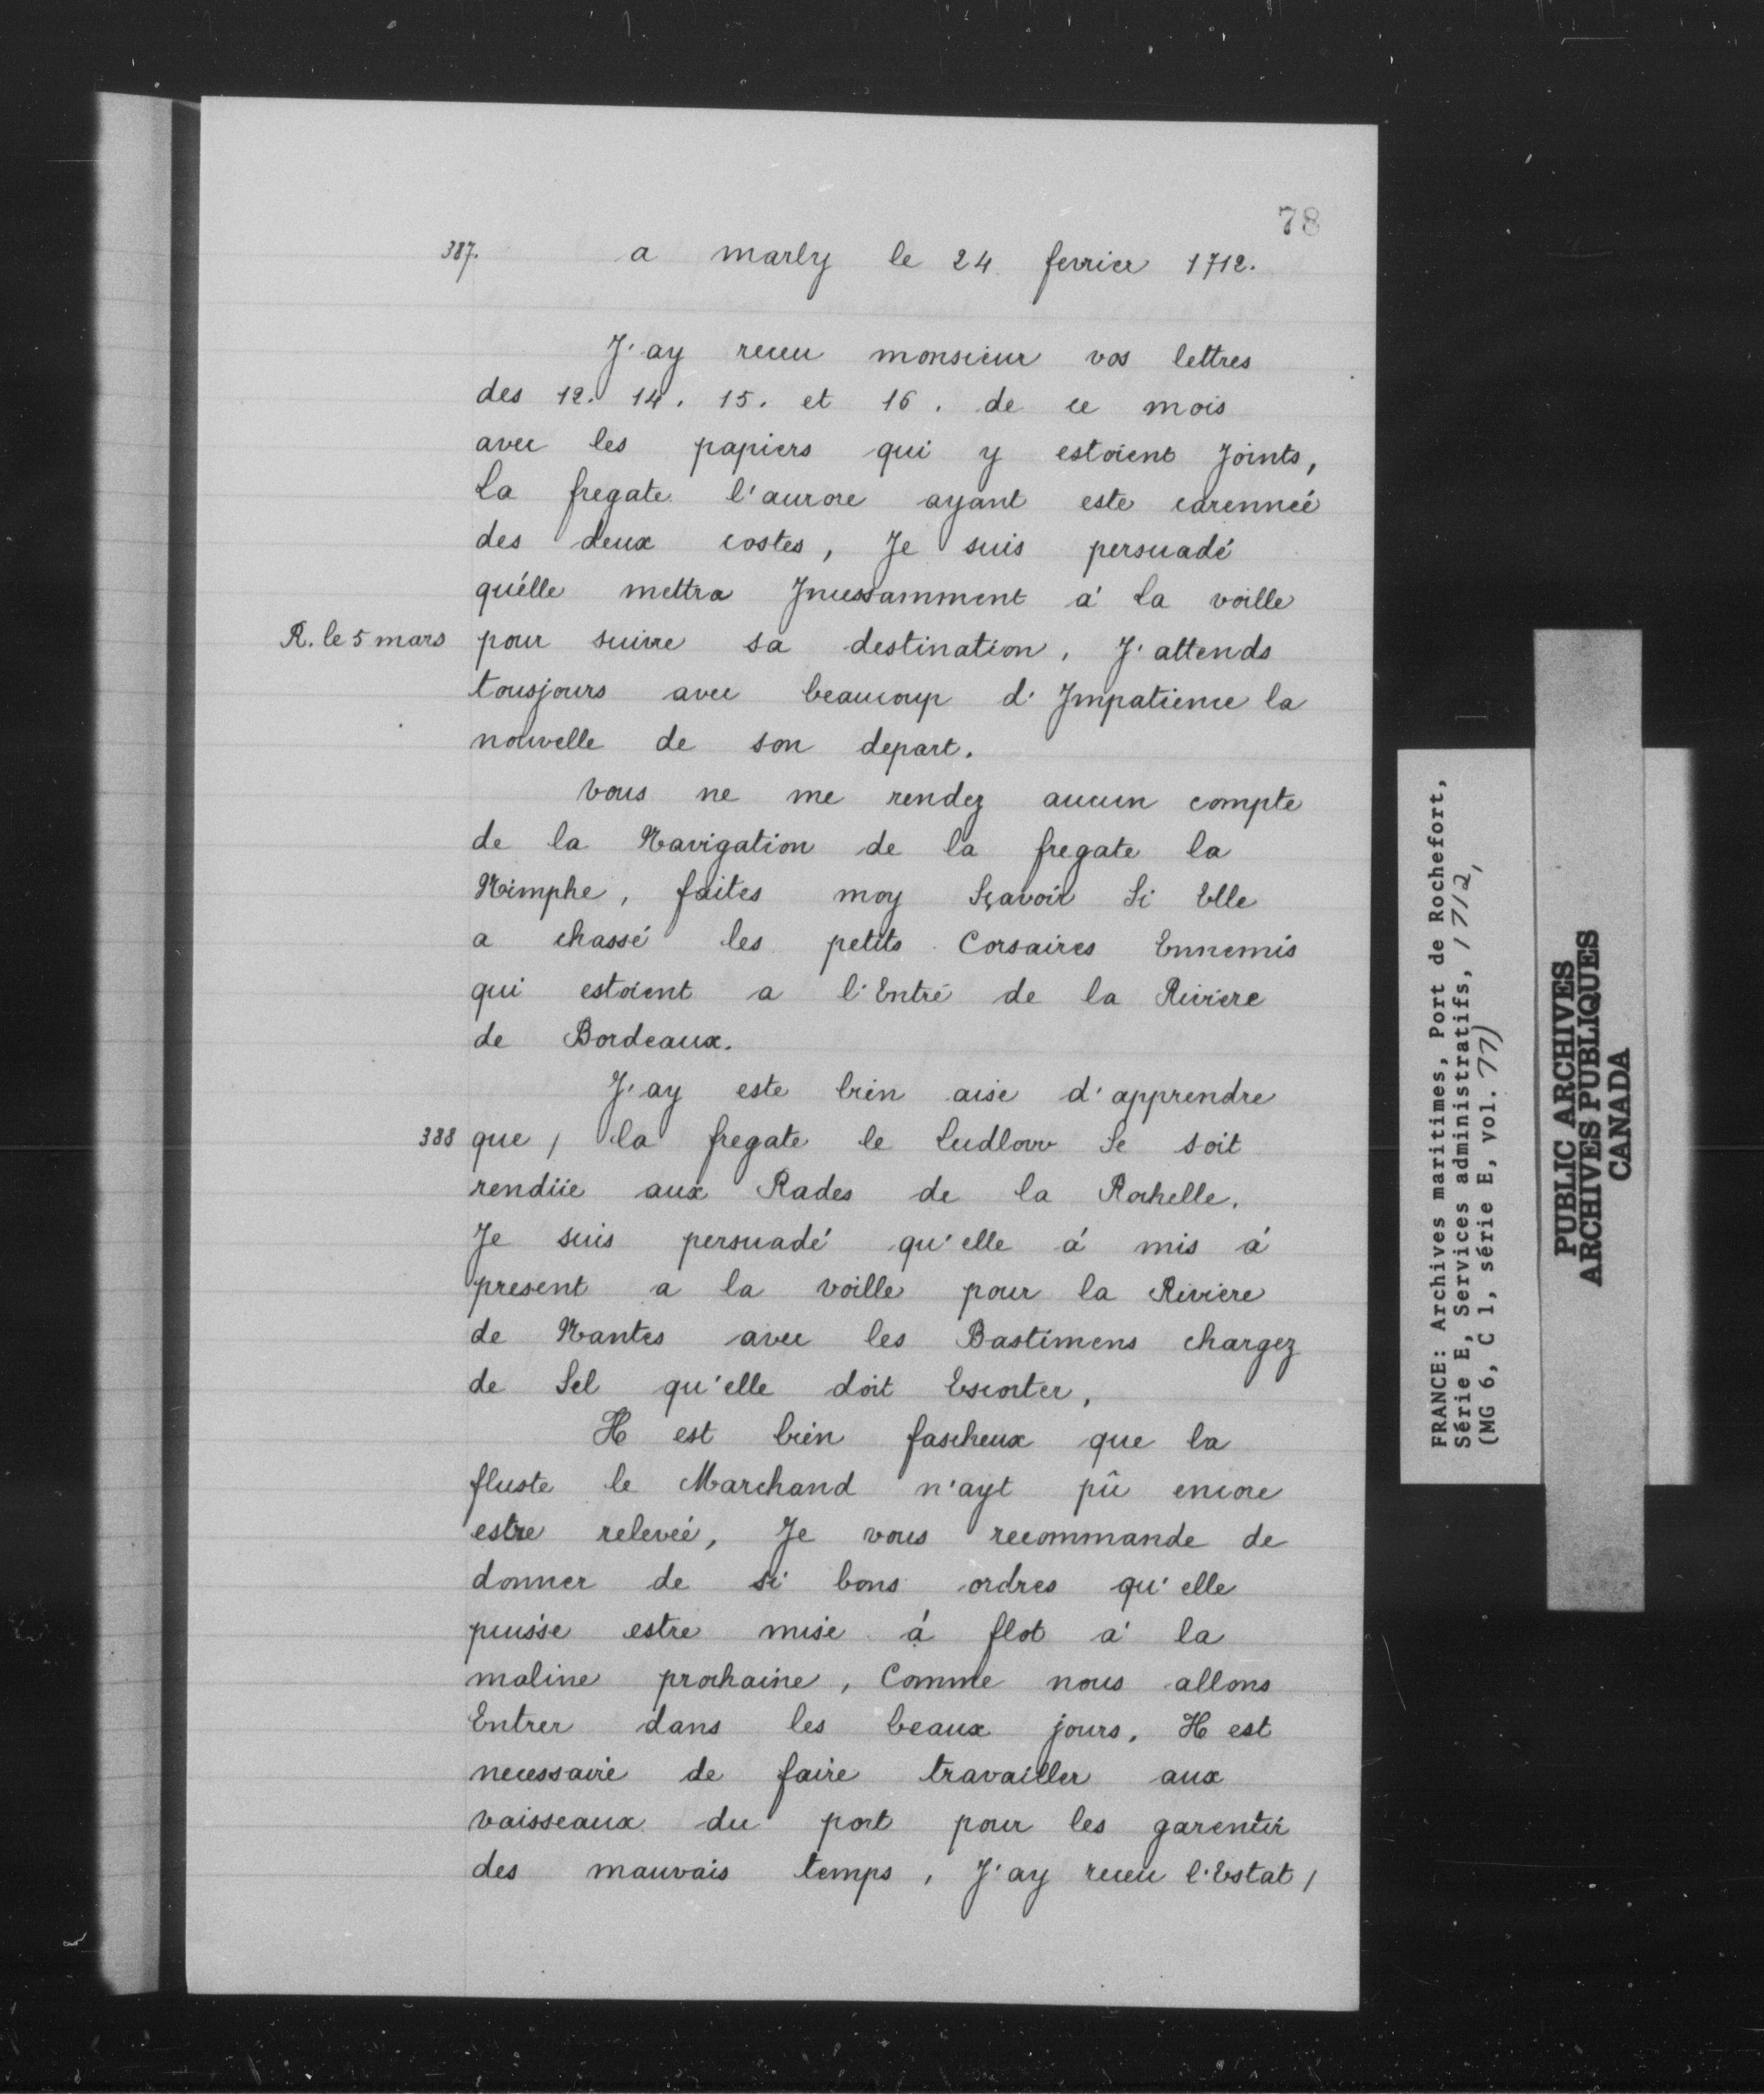 78
387. a marly le 24 fevrier 1712.
J'ay receu monsieur vos lettres
des 12. 14. 15. et 16. de ce mois
avec les papiers qui y estoient Joints,
La fregate l'aurore ayant este carenneé
des deux costes, Je suis persuadé
qu'élle mettra Jncessamment á La voille
R. le 5 mars pour suivre sa destination. J'attends
tousjours avec beaucoup d'Jmpatience la
nouvelle de son depart.
vous ne me rendez aucun compte
de la Navigation de la fregate la
Nimphe, faites moy Sçavoir Si Elle
a chassé les petits Corsaires Ennemis
qui estoient a l'Entré de la Riviere
de Bordeaux.
J'ay este bien aise d'apprendre
388 que / la fregate le Ludlow Se soit
rendüe aux Rades de la Rochelle.
Je suis persuadé qu'elle á mis á
present a la voille pour la Riviere
de Nantes avec les Bastimens chargez
de Sel qu'elle doit Escorter,
Il est bien fascheux que la
fluste le Marchand n'ayt pû encore
estre releveé, Je vous recommande de
donner de si bons ordres qu'elle
puisse estre mise á flot á la
maline prochaine, Comme nous allons
Entrer dans les beaux jours. Il est
necessaire de faire travailler aux
vaisseaux du port pour les garentir
des mauvais temps, J'ay receu l'Estat /
FRANCE: Archives maritimes, Port de Rochefort,
Série E, Services administratifs, 1712,
(MG 6, C 1, série E, vol. 77)
PUBLIC ARCHIVES
ARCHIVES PUBLIQUES
CANADA